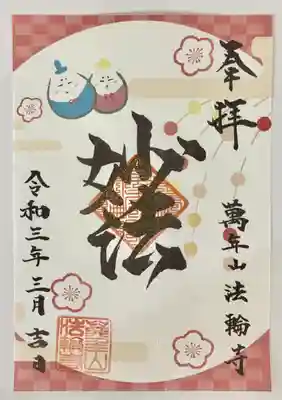 奉拝
萬年山法輪寺
妙法
令和三年三月吉日